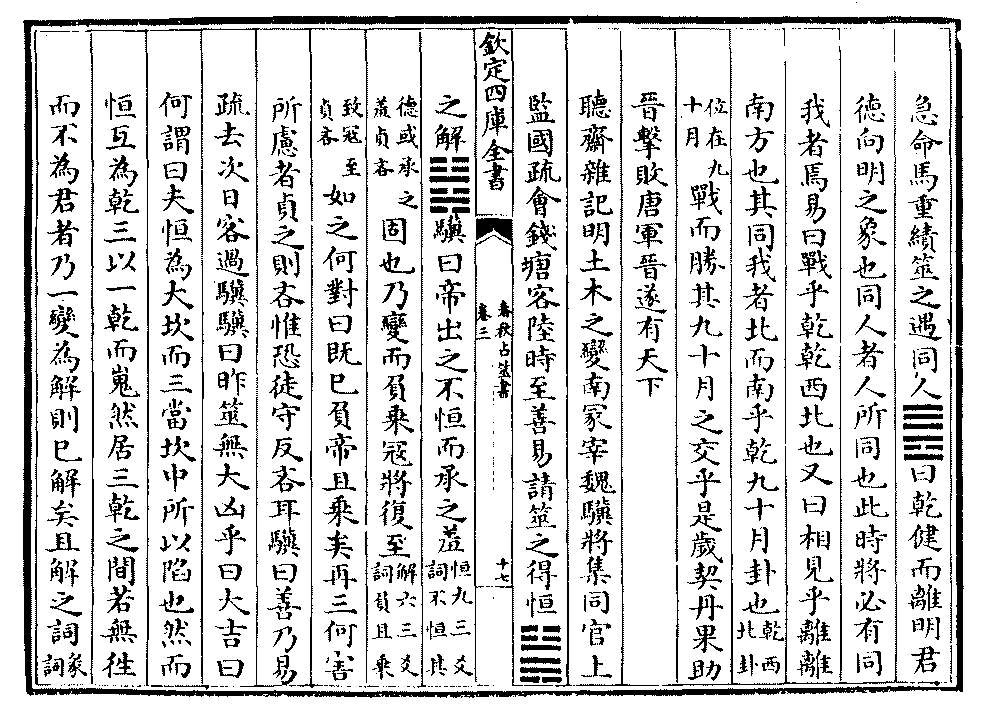 急命馬重績筮之遇同人䷌曰乾健而離明君
德向明之象也同人者人所同也此時將必有同
我者焉易曰戰乎乾乾西北也又曰相見乎離離
南方也其同我者北而南乎乾九十月卦也乾西北卦
位在九十月戰而勝其九十月之交乎是歲契丹果助
晉擊敗唐軍晉遂有天下
聽齋雜記明土木之變南冢宰魏驥將集同官上
監國疏會錢塘客陸時至善易請筮之得恒䷟
欽定四庫全書
春秋占筮書
卷三
十七
之解䷧驥曰帝出之不恒而承之羞恒九三爻詞不恒其
德或承之羞貞吝固也乃變而負乘寇將復至解六三爻詞負且乘
致寇至貞吝如之何對曰既已負帝且乘矣再三何害
所慮者貞之則吝惟恐徒守反吝耳驥曰善乃易
疏去次日客遇驥驥曰昨筮無大凶乎曰大吉曰
何謂曰夫恒為大坎而三當坎中所以陷也然而
恒互為乾三以一乾而嵬然居三乾之間若無往
而不為君者乃一變為解則已解矣且解之詞彖詞